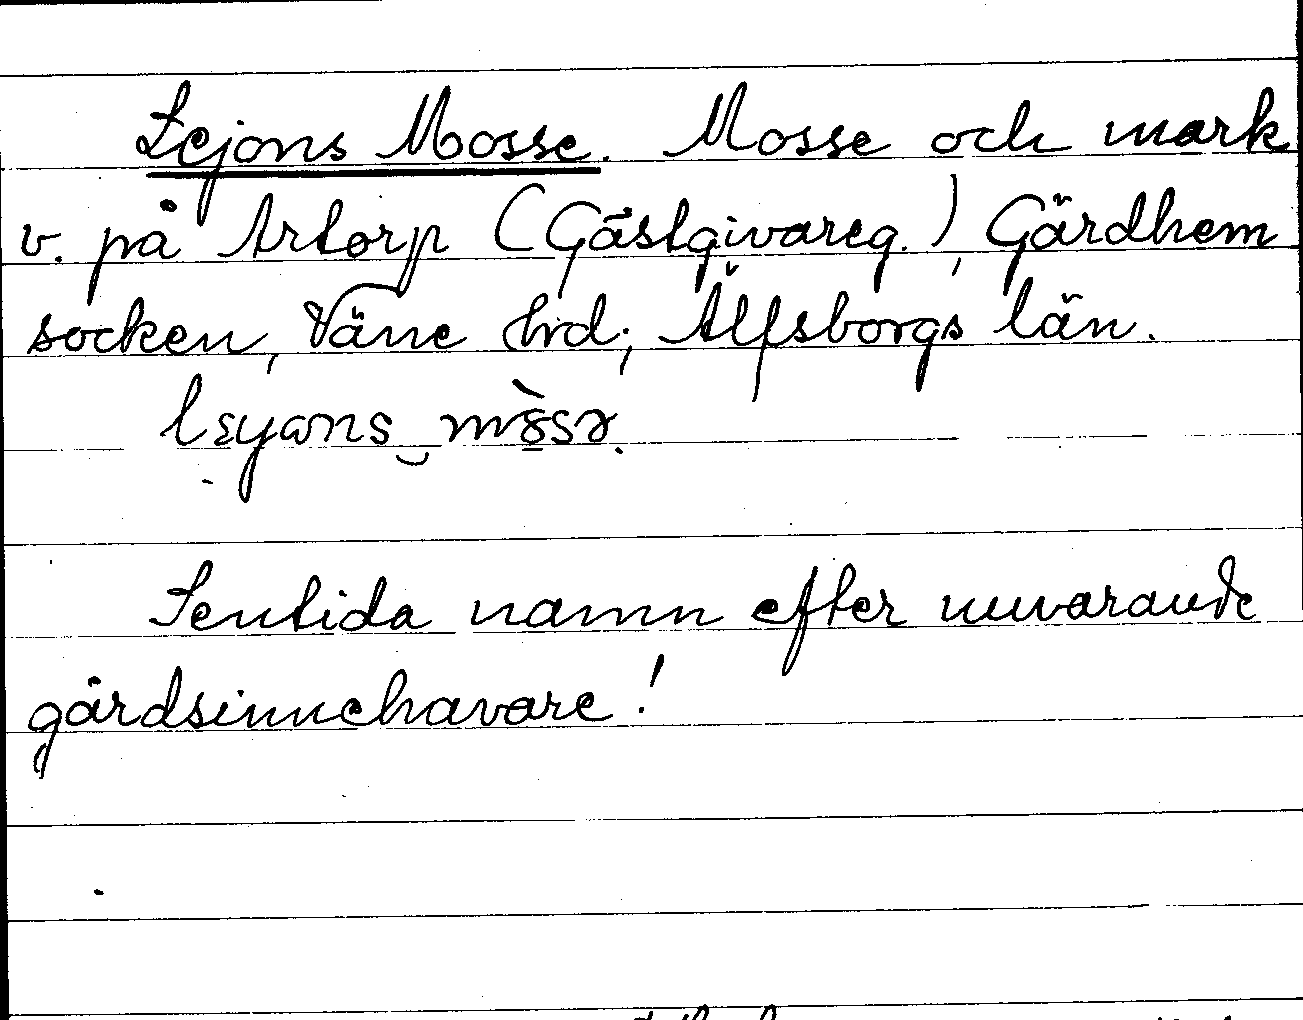 Lejons Mosse. Mosse och mark
v. på Artorp (Gästgivareg.), Gärdhem
socken, Väne hrd; Älfsborgs län.
lɛyans mòsə.
Sentida namn efter nuvarande
gårdsinnehavare!